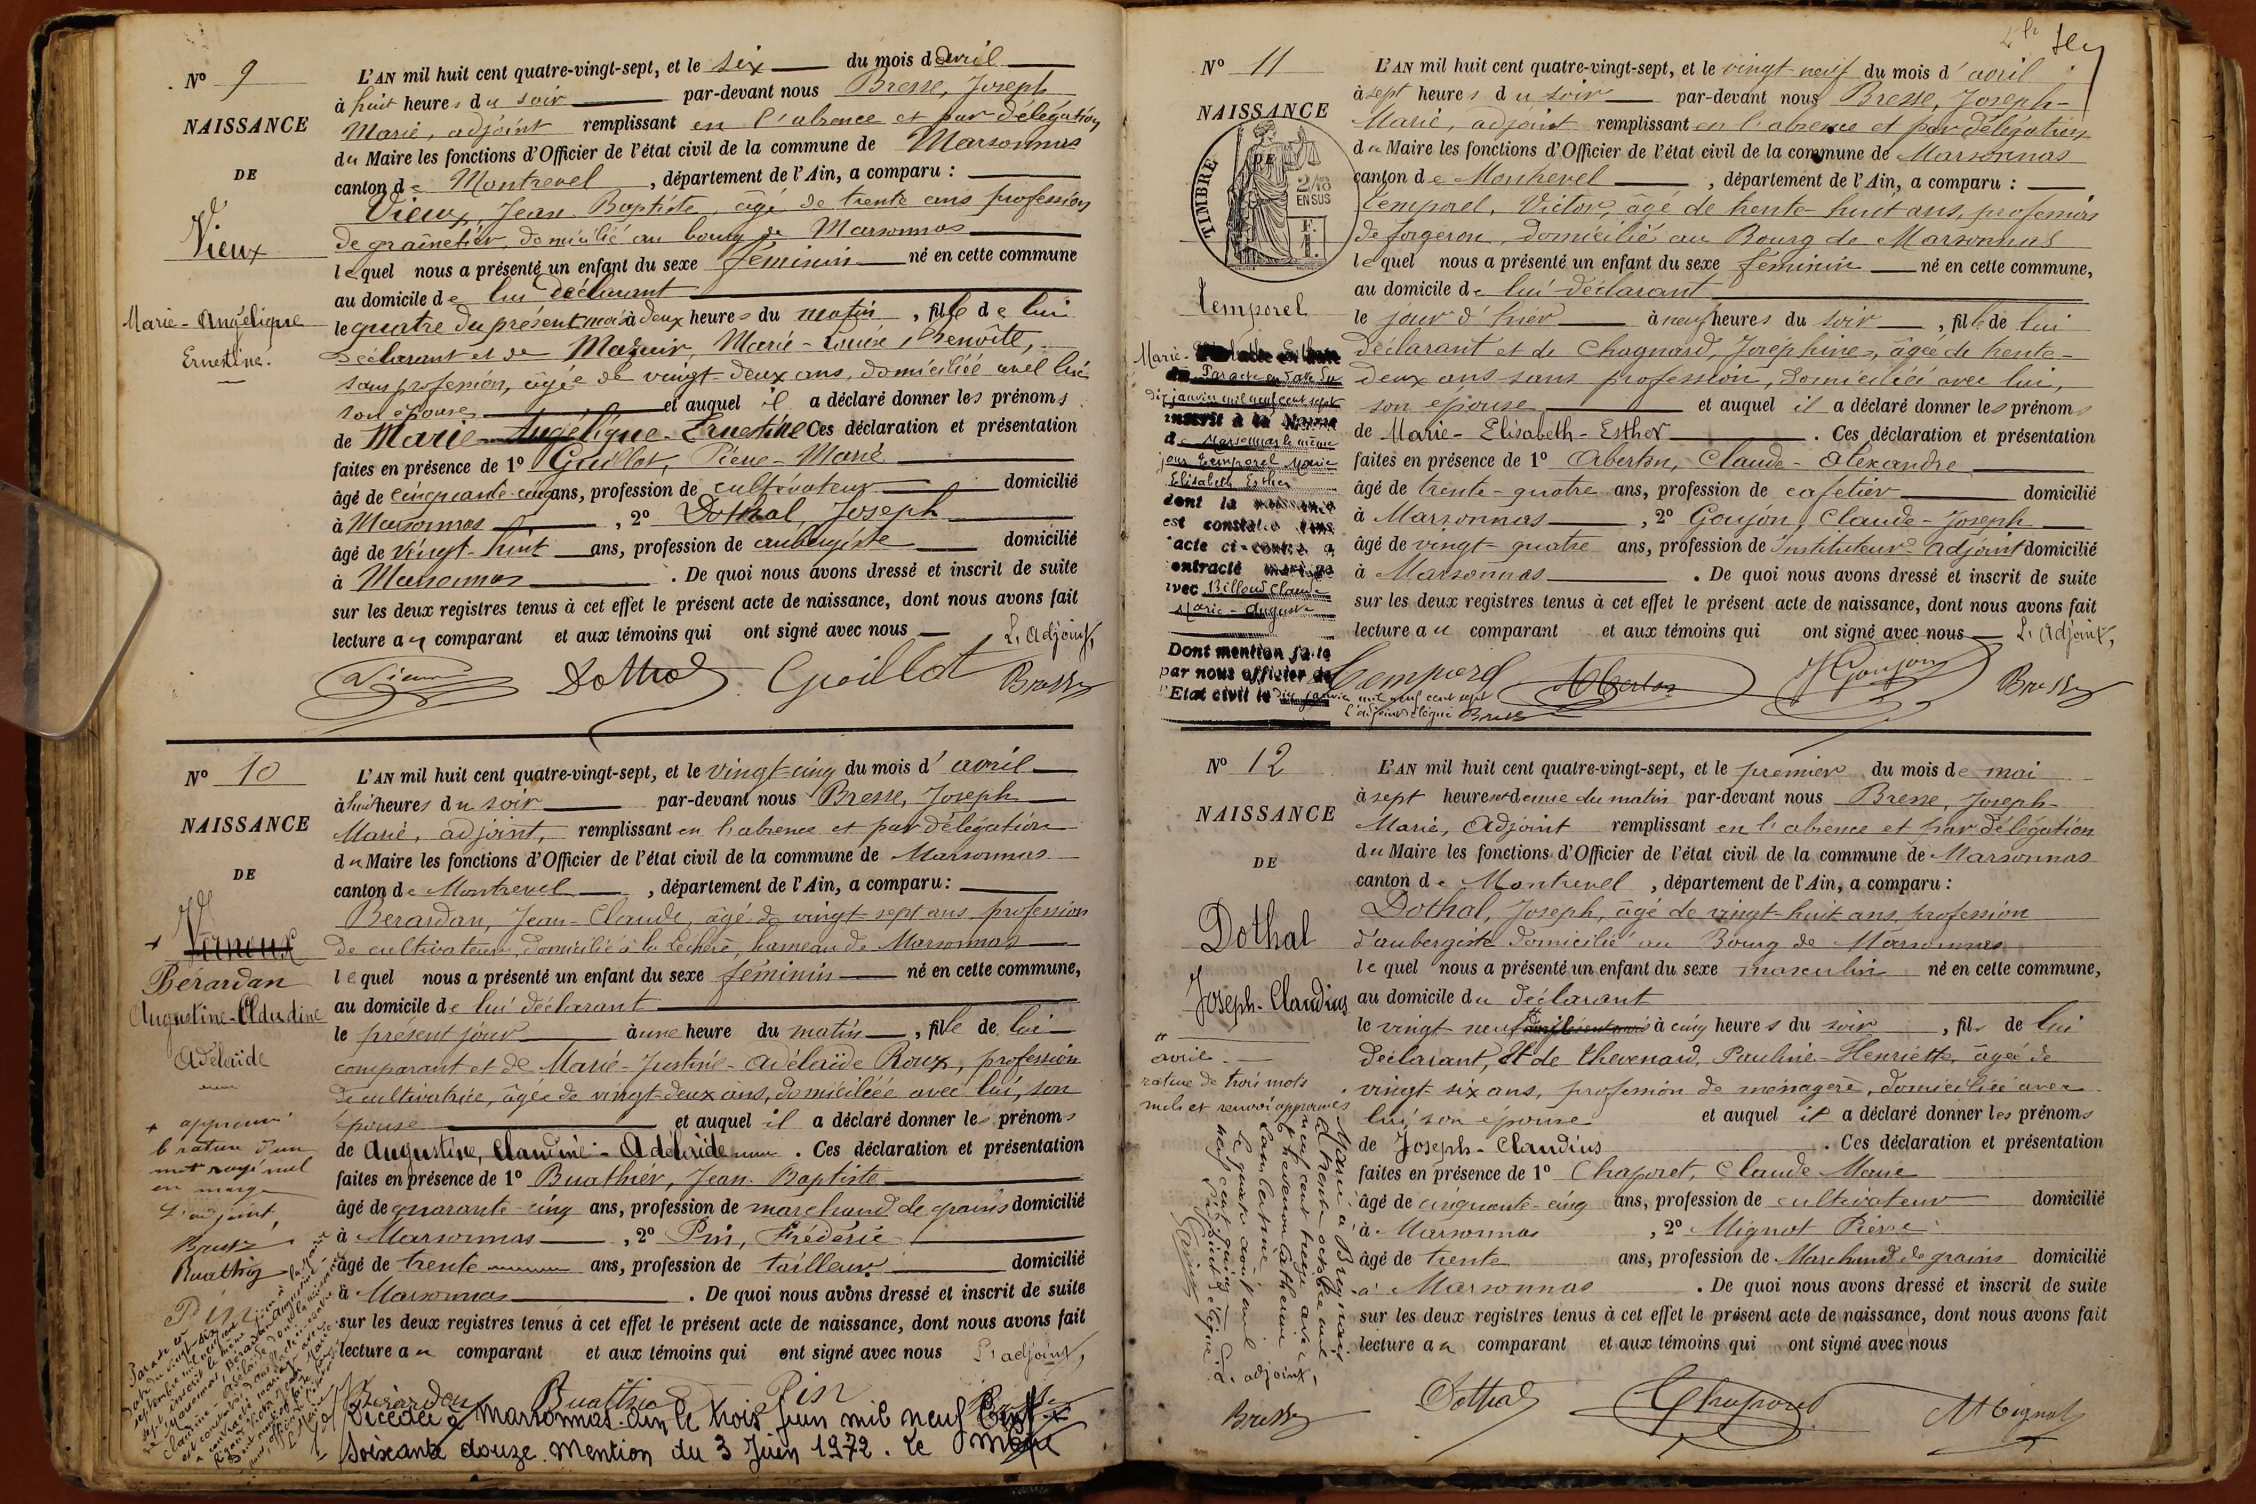 Nº 9
NAISSANCE
DE
Vieux
Marie-Angélique
Ernestine.
L'AN mil huit cent quatre-vingt-sept, et le six du mois d'avril
à huit heures du soir par-devant nous Bresse, Joseph
Marie, adjoint remplissant en l'absence et par délégation
du Maire les fonctions d'Officier de l'état civil de la commune de Marsonnas
canton de Montrevel, département de l'Ain, a comparu :
Vieux, Jean Baptiste, âgé de trente ans profession
de grainetier, domicilié au bourg de Marsonnas
lequel nous a présenté un enfant du sexe féminin né en cette commune
au domicile de lui déclarant
le quatre du présent mois à deux heures du matin, fille de lui
déclarant et de Mazuir, Marie-Louise, Benoîte,
sans profession, âgée de vingt-deux ans, domiciliée avec lui
son épouse et auquel il a déclaré donner les prénoms
de Marie-Angélique-Ernestine Ces déclaration et présentation
faites en présence de 1º Guillot, Pierre-Marie
âgé de cinquante-cinq ans, profession de cultivateur domicilié
à Marsonnas, 2º Dothal, Joseph
âgé de vingt-huit ans, profession de aubergiste domicilié
à Marsonnas. De quoi nous avons dressé et inscrit de suite
sur les deux registres tenus à cet effet le présent acte de naissance, dont nous avons fait
lecture au comparant et aux témoins qui ont signé avec nous L'adjoint,
Vieux Dothal Guillot Bresse
Nº 10
NAISSANCE
DE
Verneux
Bérardan
Augustine-Claudine
Adélaïde
+ approuvé
la rature d'un
mot rayé nul
en marge
L'adjoint,
Bresse
Buathier
Pin
L'AN mil huit cent quatre-vingt-sept, et le vingt-cinq du mois d'avril
à huit heures du soir par-devant nous Bresse, Joseph
Marie, adjoint, remplissant en l'absence et par délégation
du Maire les fonctions d'Officier de l'état civil de la commune de Marsonnas
canton de Montrevel, département de l'Ain, a comparu :
Bérardan, Jean-Claude, âgé de vingt-sept ans profession
de cultivateur, domicilié à la Léchère, hameau de Marsonnas
lequel nous a présenté un enfant du sexe féminin né en cette commune,
au domicile de lui déclarant
le présent jour à une heure du matin, fille de lui
comparant et de Marie-Justine-Adélaïde Roux, profession
de cultivatrice, âgée de vingt-deux ans, domiciliée avec lui, son
épouse et auquel il a déclaré donner les prénoms
de Augustine, Claudine-Adélaïde. Ces déclaration et présentation
faites en présence de 1º Buathier, Jean-Baptiste
âgé de quarante-cinq ans, profession de marchand de grains domicilié
à Marsonnas, 2º Pin, Frédéric
âgé de trente ans, profession de tailleur domicilié
à Marsonnas. De quoi nous avons dressé et inscrit de suite
sur les deux registres tenus à cet effet le présent acte de naissance, dont nous avons fait
lecture au comparant et aux témoins qui ont signé avec nous L'adjoint,
Bérardan Buathier Pin Bresse
Décédée à Marsonnas-Ain le trois juin mil neuf cent
soixante douze. Mention du 3 Juin 1972. Le Maire
Nº 11
NAISSANCE
DE
TIMBRE
2/10
EN SUS
Temporel
Marie-
Par acte en date du
dix janvier mil neuf cent sept
inscrit à la Mairie
de Marsonnas le même
jour Temporel Marie
Elisabeth Esther
dont la naissance
est constatée dans
l'acte ci-contre a
contracté mariage
avec Billoud Claude
Marie-Auguste
Dont mention faite
par nous officier de
l'Etat civil le dix janvier mil neuf cent sept
l'adjoint délégué Bresse
L'AN mil huit cent quatre-vingt-sept, et le vingt-neuf du mois d'avril
à sept heures du soir par-devant nous Bresse, Joseph-
Marie, adjoint remplissant en l'absence et par délégation
du Maire les fonctions d'Officier de l'état civil de la commune de Marsonnas
canton de Montrevel, département de l'Ain, a comparu :
Temporel, Victor, âgé de trente-huit ans, profession
de forgeron, domicilié au Bourg de Marsonnas
lequel nous a présenté un enfant du sexe féminin né en cette commune,
au domicile de lui déclarant
le jour d'hier à neuf heures du soir, fille de lui
déclarant et de Chagnard, Joséphine, âgée de trente-
deux ans sans profession, domiciliée avec lui,
son épouse et auquel il a déclaré donner les prénoms
de Marie-Elisabeth-Esther. Ces déclaration et présentation
faites en présence de 1º Aberton, Claude-Alexandre
âgé de trente-quatre ans, profession de cafetier domicilié
à Marsonnas, 2º Goujon, Claude-Joseph
âgé de vingt-quatre ans, profession de Instituteur-adjoint domicilié
à Marsonnas. De quoi nous avons dressé et inscrit de suite
sur les deux registres tenus à cet effet le présent acte de naissance, dont nous avons fait
lecture au comparant et aux témoins qui ont signé avec nous L'adjoint,
Temporel Aberton Goujon Bresse
Nº 12
NAISSANCE
DE
Dothal
Joseph-Claudius
avril
rature de trois mots
nuls et renvoi approuvés
Marié à
L'adjoint,
Bresse
L'AN mil huit cent quatre-vingt-sept, et le premier du mois de mai
à sept heures et demie du matin par-devant nous Bresse, Joseph-
Marie, adjoint remplissant en l'absence et par délégation
du Maire les fonctions d'Officier de l'état civil de la commune de Marsonnas
canton de Montrevel, département de l'Ain, a comparu :
Dothal, Joseph, âgé de vingt-huit ans, profession
d'aubergiste domicilié au Bourg de Marsonnas
lequel nous a présenté un enfant du sexe masculin né en cette commune,
au domicile du déclarant
le vingt-neuf à cinq heures du soir, fils de lui
déclarant, et de Thevenard, Pauline-Henriette, âgée de
vingt-six ans, profession de ménagère, domiciliée avec
lui, son épouse et auquel il a déclaré donner les prénoms
de Joseph-Claudius. Ces déclaration et présentation
faites en présence de 1º Chaporet, Claude Marie
âgé de cinquante-cinq ans, profession de cultivateur domicilié
à Marsonnas, 2º Mignot Pierre
âgé de trente ans, profession de Marchand de grains domicilié
à Marsonnas. De quoi nous avons dressé et inscrit de suite
sur les deux registres tenus à cet effet le présent acte de naissance, dont nous avons fait
lecture au comparant et aux témoins qui ont signé avec nous
Dothal Chaporet Mignot